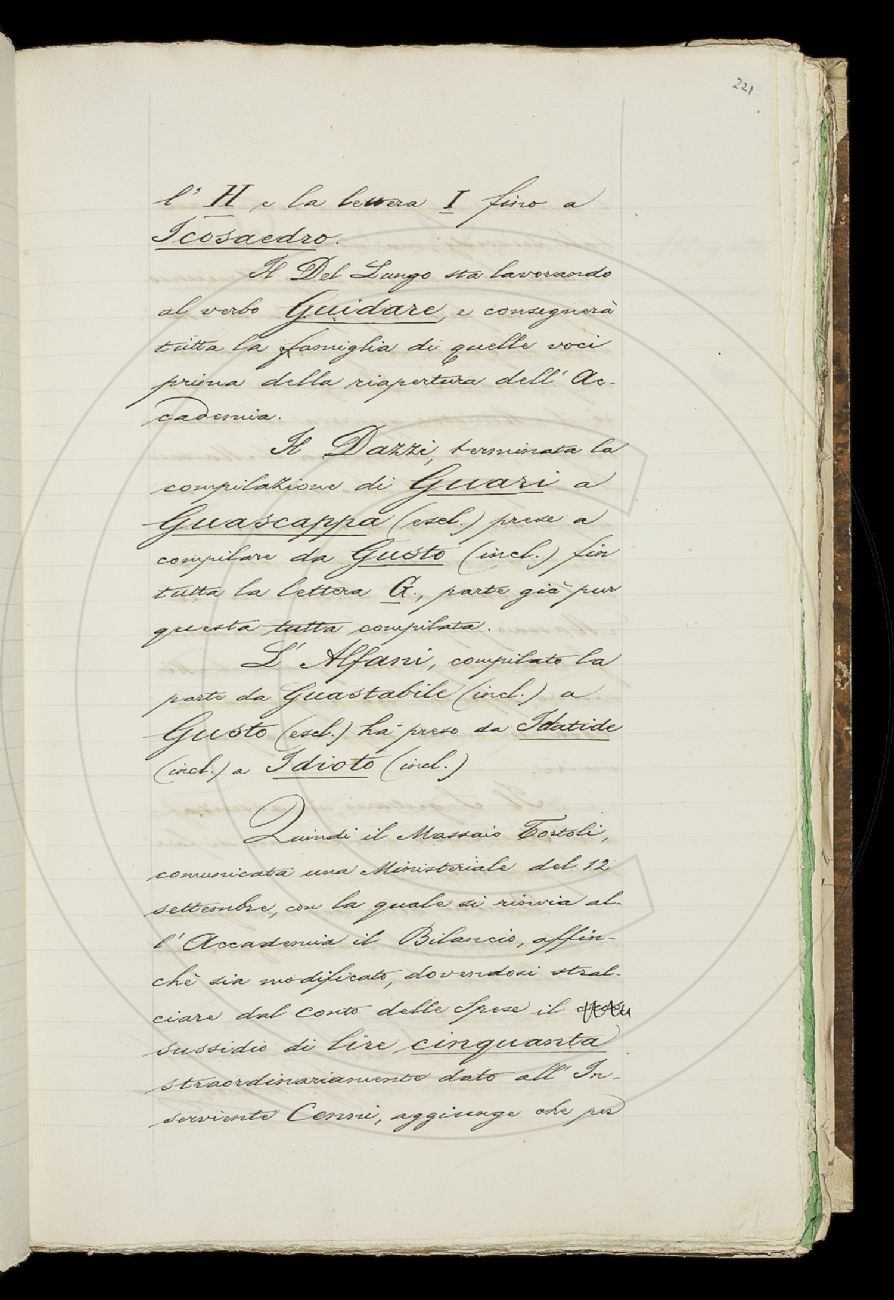 221
l' H e la lettera I fino a
Icosaedro.
Il Del Lungo sta lavorando
al verbo Guidare, e consegnerà
tutta la famiglia di quelle voci
prima della riapertura dell' Ac-
cademia.
Il Dazzi, terminata la
compilazione di Guari a
Guascappa (escl.) prese a
compilare da Gusto (incl.) fin
tutta la lettera G., parte già pur
questa tutta compilata.
L' Alfani, compilato la
parte da Guastabile (incl.) a
Gusto (escl.) ha preso da Idatide
(incl.) a Idioto (incl.)
Quindi il Massaio Tortoli,
comunicata una Ministeriale del 12
settembre, con la quale si rinvia al-
l' Accademia il Bilancio, affin-
chè sia modificato, dovendosi stral-
ciare dal conto delle Spese il
sussidio di lire cinquanta
straordinariamente dato all' In-
serviente Cenni, aggiunge che per